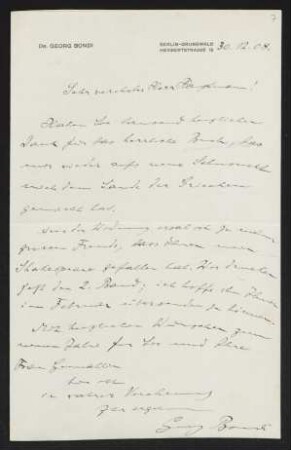 7
DR. GEORG BONDI
BERLIN-GRUNEWALD
HERBERTSTRASSE 15
30. 12. 08.
Sehr verehrter Herr Hauptmann!
Haben Sie tausend herzlichen
Dank für das herrliche Buch, das
mir wieder aufs neue Sehnsucht
nach dem Lande der Griechen
gemacht hat.
ersah ich zu meiner
grossen Freude, dass Ihnen mein
Shakespeare gefallen hat. Wir drucken
jetzt den 2. Band; ich hoffe ihn Ihnen
im Februar übersenden zu können.
Mit herzlichen Wünschen zum
neuen Jahre für Sie und Ihre
Frau Gemahlin
bin ich
in wahrer Verehrung
Ihr ergebener
Georg Bondi